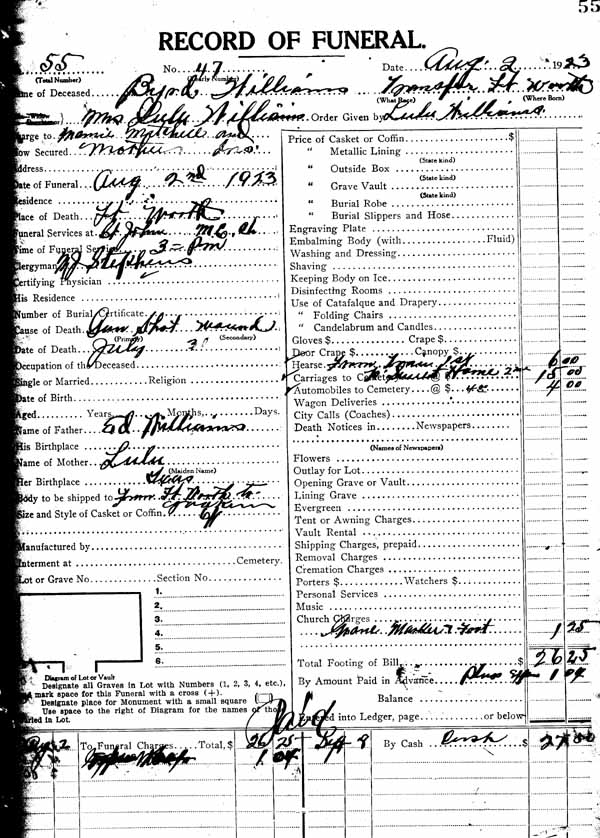 55
RECORD OF FUNERAL.
55 No. 47 Date Aug 2 1923
(Total Number) (Yearly Number)
me of Deceased Williams Transfer Ft Worth
(What Race) (Where Born)
Mrs Lula Williams Order Given by Lula Williams
arge to Mamie Mitchell and
ow Secured Mother Ins.
Address
Date of Funeral Aug 2nd 1923
Residence " "
Place of Death Ft Worth
Funeral Services at St John M.E. Ch
Time of Funeral Service 3 Pm
Clergyman Stephens
Certifying Physician
His Residence
Number of Burial Certificate
Cause of Death Gun Shot wound
(Primary) (Secondary)
Date of Death July 31
Occupation of the Deceased
Single or Married Religion
Date of Birth
Aged Years Months Days.
Name of Father Ed Williams
His Birthplace
Name of Mother Lula
(Maiden Name)
Her Birthplace Texas
Body to be shipped to From Ft Worth to
Size and Style of Casket or Coffin
Manufactured by
Interment at Cemetery.
Lot or Grave No. Section No.
1.
2.
3.
4.
5.
6.
Diagram of Lot or Vault
Designate all Graves in Lot with Numbers (1, 2, 3, 4, etc.),
mark space for this Funeral with a cross (+).
Designate place for Monument with a small square
Use space to the right of Diagram for the names of those
ried in Lot.
Price of Casket or Coffin $
" Metallic Lining
(State kind)
" Outside Box
(State kind)
" Grave Vault
(State kind)
" Burial Robe
" Burial Slippers and Hose
Engraving Plate
Embalming Body (with Fluid)
Washing and Dressing
Shaving
Keeping Body on Ice
Disinfecting Rooms
Use of Catafalque and Drapery
" Folding Chairs
" Candelabrum and Candles
Gloves $ Crape $
Door Crape $ Canopy $
Hearse From Train 1st 6 00
Carriages to Cemetery Home 2nd 15 00
Automobiles to Cemetery @ $ 4 00
Wagon Deliveries
City Calls (Coaches)
Death Notices in Newspapers
(Names of Newspapers)
Flowers
Outlay for Lot
Opening Grave or Vault
Lining Grave
Evergreen
Tent or Awning Charges
Vault Rental
Shipping Charges, prepaid
Removal Charges
Cremation Charges
Porters $ Watchers $
Personal Services
Music
Church Charges
Grave Marker & Foot 1 25
Total Footing of Bill $ 26 25
By Amount Paid in Advance Plus 1 04
Balance
Entered into Ledger, page or below
Paid
Aug 2 To Funeral Charges Total, $ 26 25 Sept 8 By Cash Cash $ 27
1 04